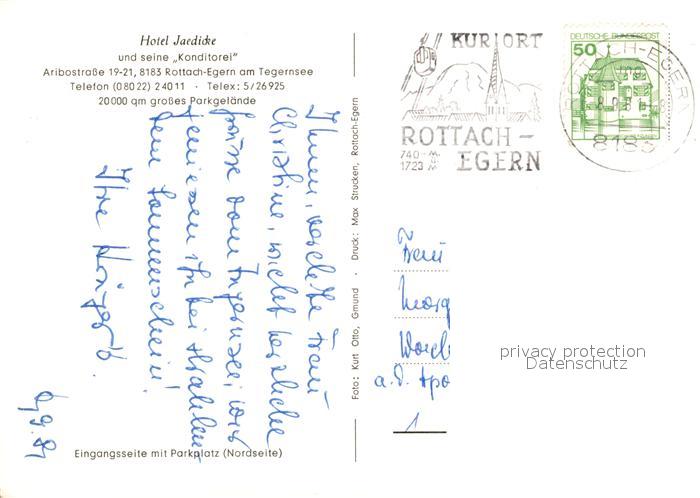 Hotel Jaedicke
und seine „Konditorei"
Aribostraße 19-21, 8183 Rottach-Egern am Tegernsee
Telefon (08022) 24011 · Telex: 5/26925
20000 qm großes Parkgelände
Ihnen, verehrte Frau
Christine, recht herzliche
Grüsse vom Tegernsee, wir
geniessen ihn bei strahlen-
dem Sonnenschein!
Ihre
Eingangsseite mit Parkplatz (Nordseite)
Foto: Kurt Otto, Gmund · Druck: Max Strucken, Rottach-Egern
KURORT
ROTTACH-
EGERN
740-
1723 m
DEUTSCHE BUNDESPOST
50
ROTTACH-EGERN
8183
Frau
a.d.
1
privacy protection
Datenschutz